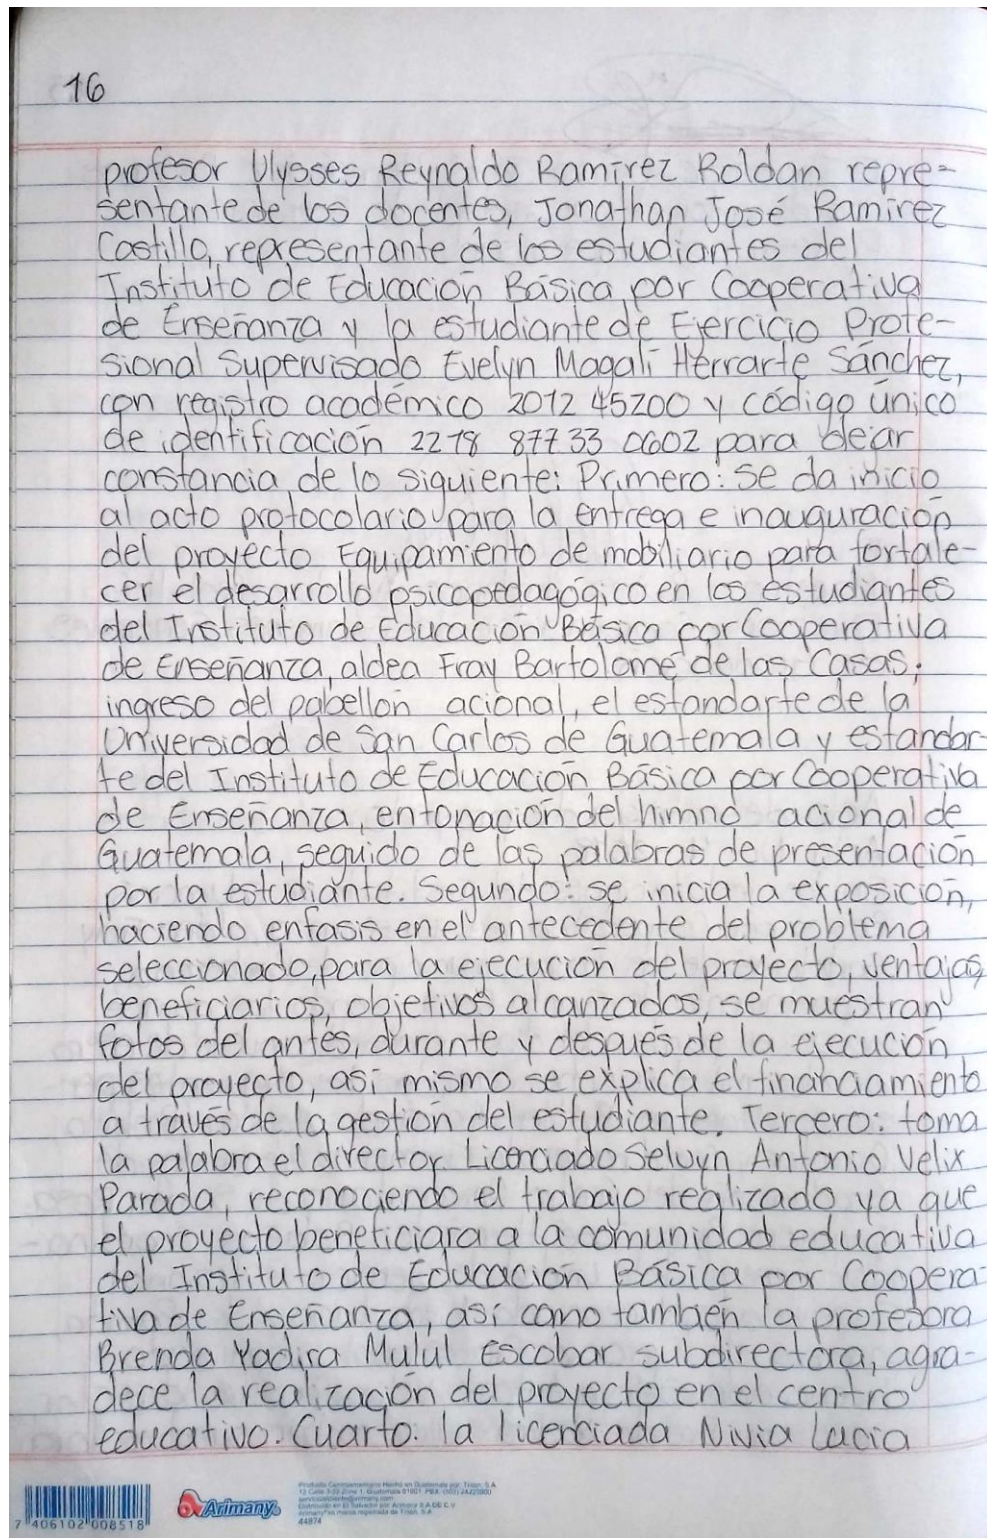 16
profesor Ulysses Reynaldo Ramírez Roldan repre-
sentante de los docentes, Jonathan José Ramírez
Castillo, representante de los estudiantes del
Instituto de Educación Básica por Cooperativa
de Enseñanza y la estudiante de Ejercicio Profe-
sional Supervisado Evelyn Magalí Herrarte Sánchez,
con registro académico 2012 45200 y código único
de identificación 2278 87733 0602 para dejar
constancia de lo siguiente: Primero: se da inicio
al acto protocolario para la entrega e inauguración
del proyecto Equipamiento de mobiliario para fortale-
cer el desarrollo psicopedagógico en los estudiantes
del Instituto de Educación Básica por Cooperativa
de Enseñanza, aldea Fray Bartolomé de las Casas;
ingreso del pabellón acional, el estandarte de la
Universidad de San Carlos de Guatemala y estandar-
te del Instituto de Educación Básica por Cooperativa
de Enseñanza, entonación del himno acional de
Guatemala, seguido de las palabras de presentación
por la estudiante. Segundo: se inicia la exposición,
haciendo enfasis en el antecedente del problema
seleccionado, para la ejecución del proyecto, ventajas,
beneficiarios, objetivos alcanzados, se muestran
fotos del antes, durante y después de la ejecución
del proyecto, así mismo se explica el financiamiento
a través de la gestión del estudiante. Tercero: toma
la palabra el director Licenciado Selvyn Antonio Velix
Parada, reconociendo el trabajo realizado ya que
el proyecto beneficiara a la comunidad educativa
del Instituto de Educación Básica por Coopera-
tiva de Enseñanza, así como también la profesora
Brenda Yadira Mulul Escobar subdirectora, agra-
dece la realización del proyecto en el centro
educativo. Cuarto: la licenciada Nivia Lucia
7 406102 008518
Arimany
44874